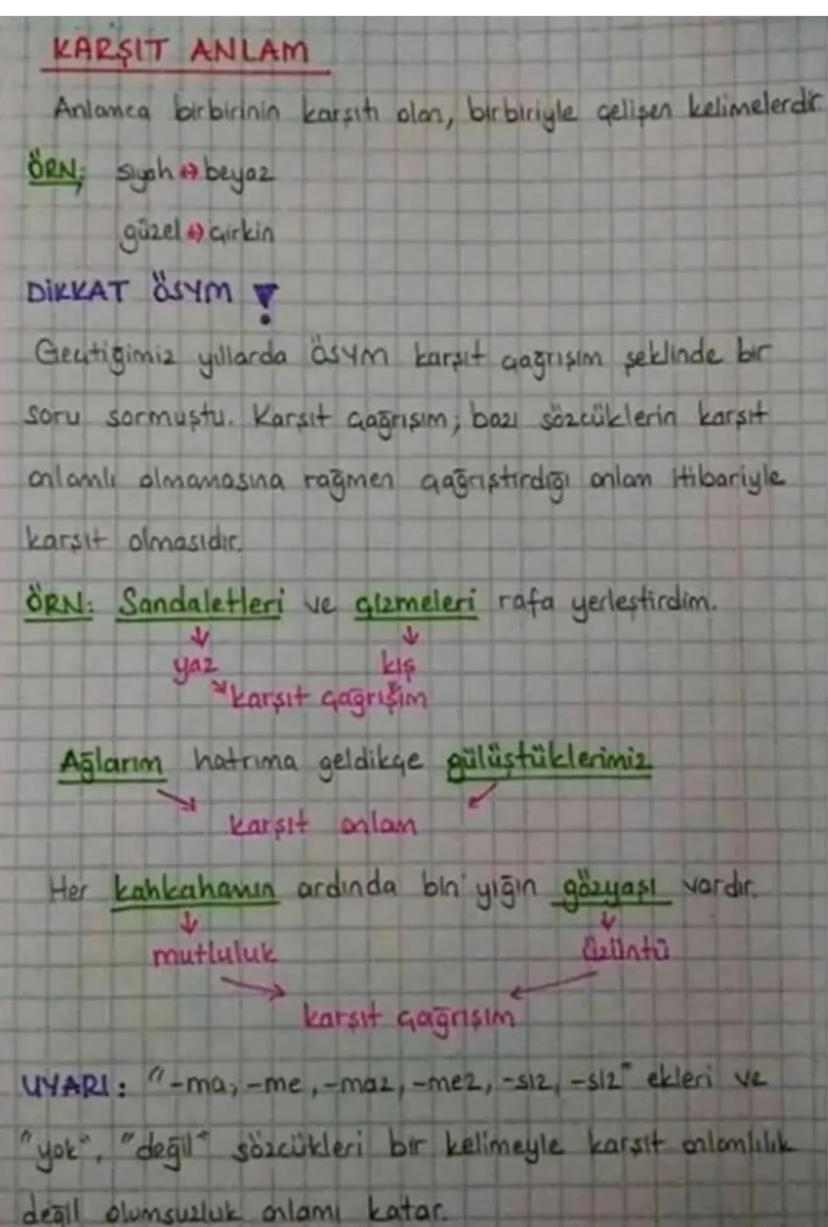 KARŞIT ANLAM
Anlamca birbirinin karşıtı olan, birbiriyle çelişen kelimelerdir
ÖRN; siyah ↔ beyaz
güzel ↔ çirkin
DİKKAT ÖSYM !
Geçtiğimiz yıllarda ÖSYM karşıt çağrışım şeklinde bir
soru sormuştu. Karşıt çağrışım; bazı sözcüklerin karşıt
anlamlı olmamasına rağmen çağrıştırdığı anlam itibariyle
karşıt olmasıdır.
ÖRN: Sandaletleri ve çizmeleri rafa yerleştirdim.
yaz kış
karşıt çağrışım
Ağlarım hatrıma geldikçe gülüştüklerimiz
karşıt anlam
Her kahkahanın ardında bin yığın gözyaşı vardır.
mutluluk üzüntü
karşıt çağrışım
UYARI: "-ma, -me, -maz, -mez, -sız, -siz" ekleri ve
"yok", "değil" sözcükleri bir kelimeyle karşıt anlamlılık
değil olumsuzluk anlamı katar.